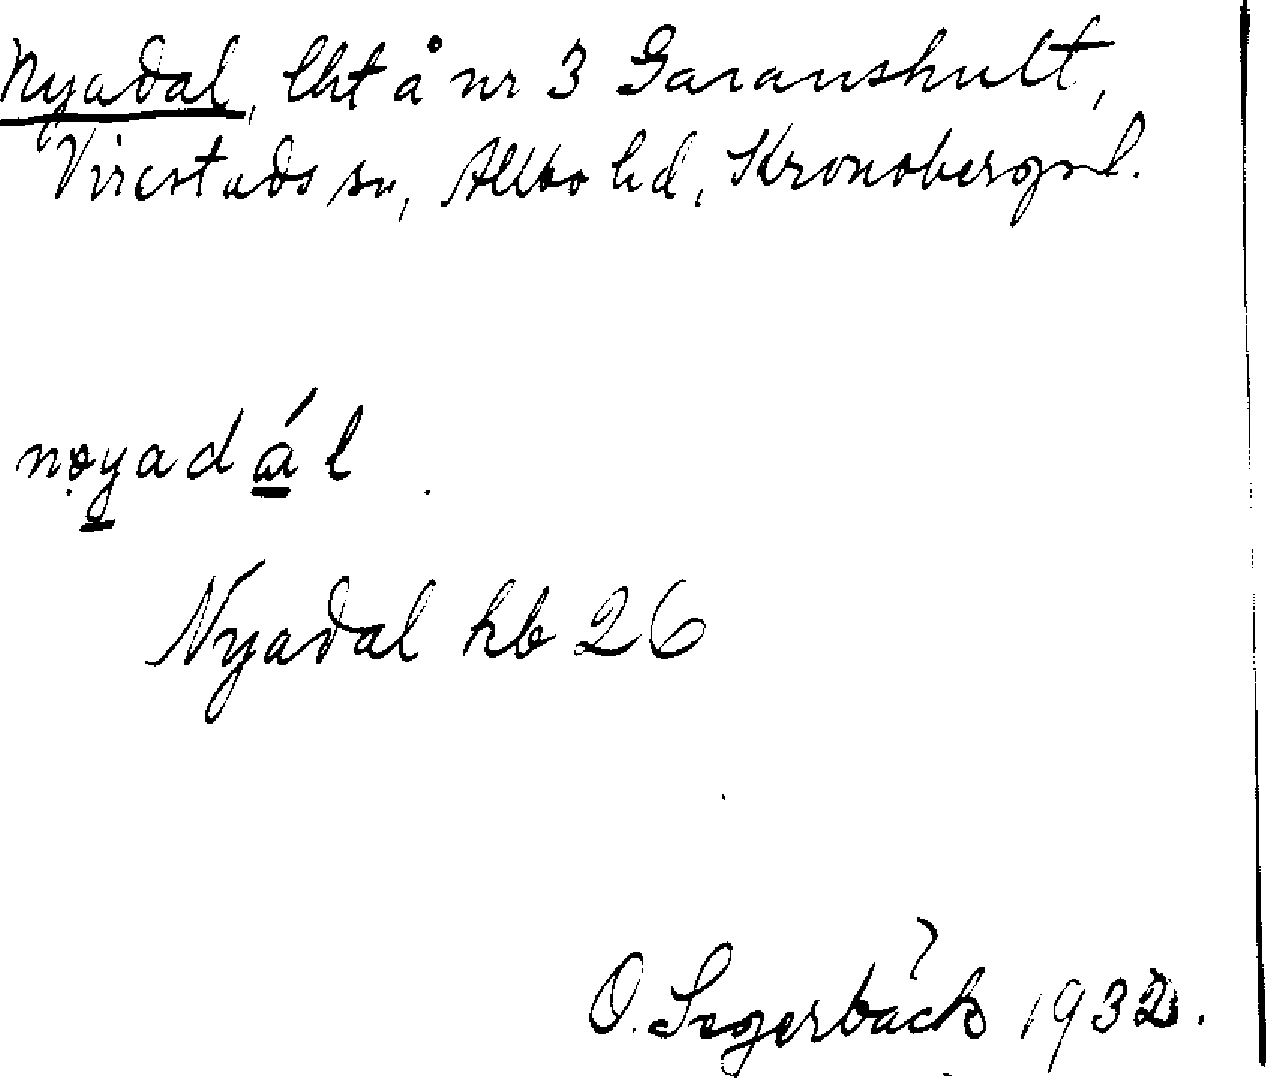 Nyadal, lht å nr 3 Garanshult,
Virestads sn, Allbo hd, Kronobergs l.
nøyadál
Nyadal hb 26
O. Segerbäck 1932.